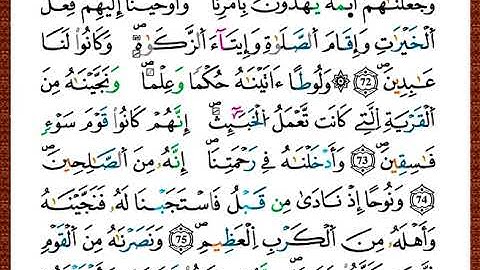 وَجَعَلْنَٰهُمْ أَئِمَّةً يَهْدُونَ بِأَمْرِنَا وَأَوْحَيْنَا إِلَيْهِمْ فِعْلَ
ٱلْخَيْرَٰتِ وَإِقَامَ ٱلصَّلَوٰةِ وَإِيتَآءَ ٱلزَّكَوٰةِ ۖ وَكَانُوا۟ لَنَا
عَٰبِدِينَ ۝72 ۞ وَلُوطًا ءَاتَيْنَٰهُ حُكْمًا وَعِلْمًا ۖ وَنَجَّيْنَٰهُ مِنَ
ٱلْقَرْيَةِ ٱلَّتِى كَانَت تَّعْمَلُ ٱلْخَبَٰٓئِثَ ۗ إِنَّهُمْ كَانُوا۟ قَوْمَ سَوْءٍ
فَٰسِقِينَ ۝73 وَأَدْخَلْنَٰهُ فِى رَحْمَتِنَآ ۖ إِنَّهُۥ مِنَ ٱلصَّٰلِحِينَ
۝74 وَنُوحًا إِذْ نَادَىٰ مِن قَبْلُ فَٱسْتَجَبْنَا لَهُۥ فَنَجَّيْنَٰهُ
وَأَهْلَهُۥ مِنَ ٱلْكَرْبِ ٱلْعَظِيمِ ۝75 وَنَصَرْنَٰهُ مِنَ ٱلْقَوْمِ